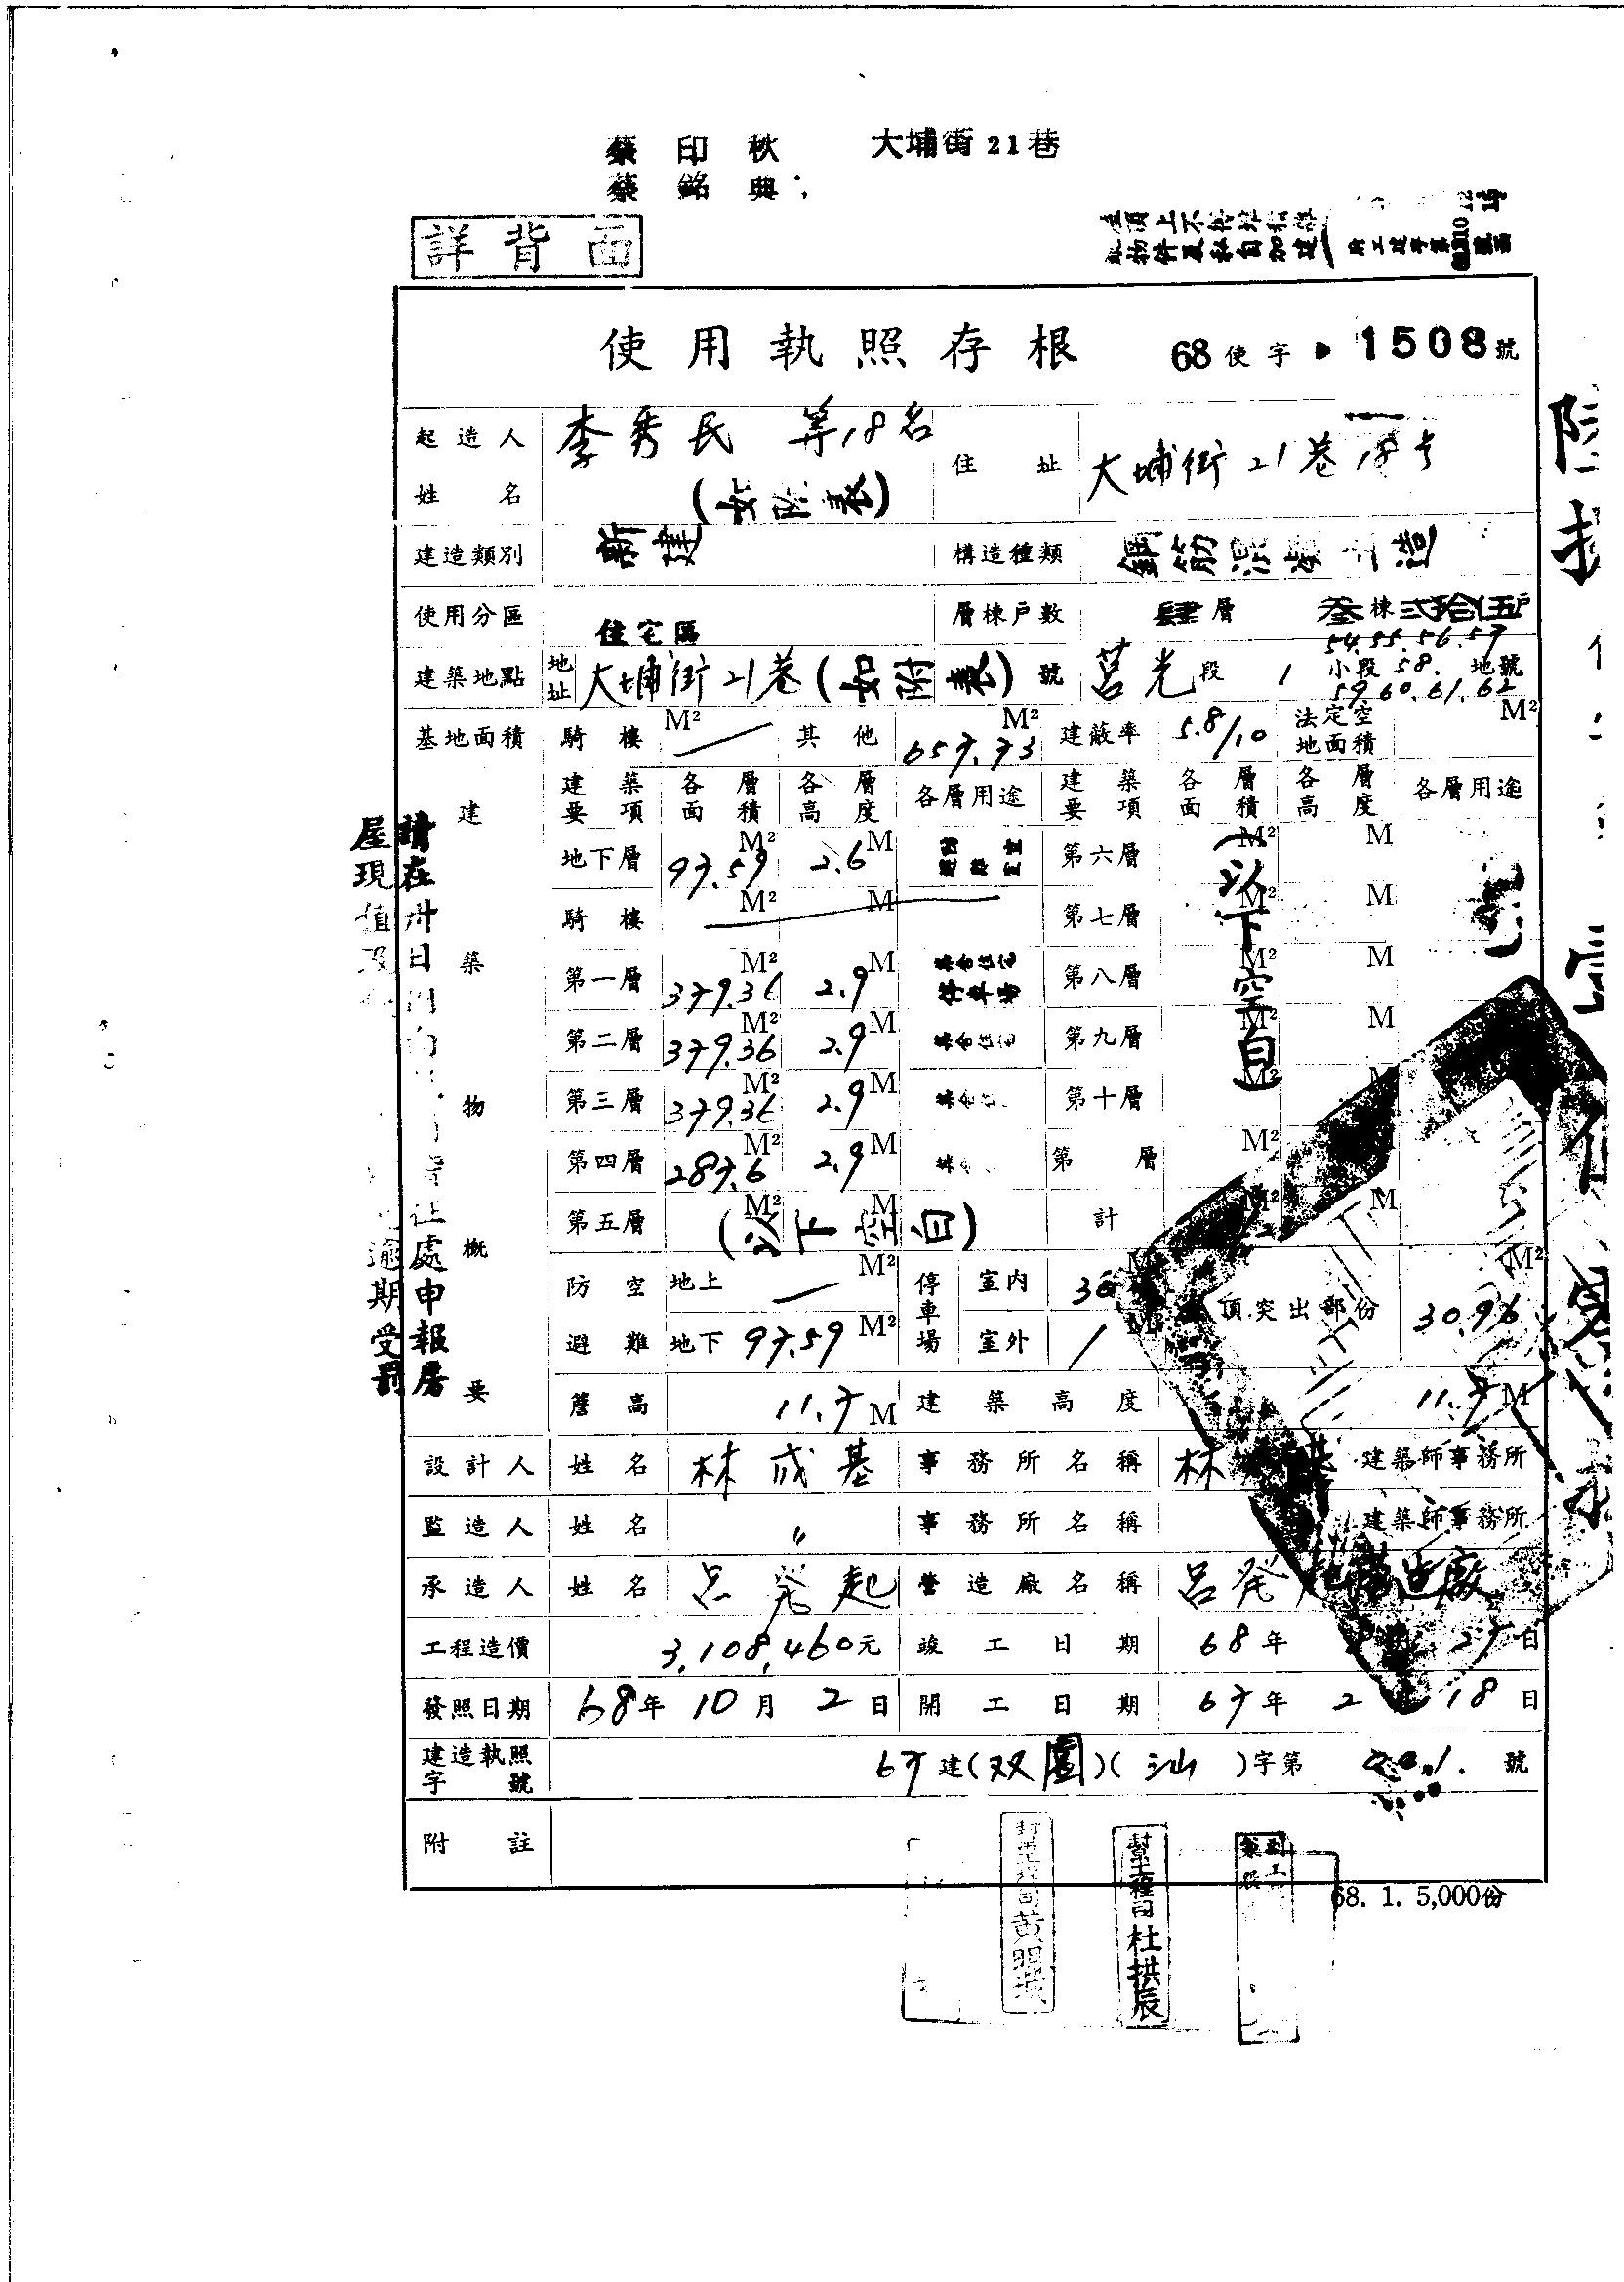 蔡印秋 大埔街21巷
蔡銘典
詳背面
使用執照存根 68使字 1508號
起造人姓名 李秀民 等18名 (如附表) 住址 大埔街21巷18号
建造類別 新建 構造種類 鋼筋混凝土造
使用分區 住宅區 層棟戶數 肆層 叁棟 弍拾伍戶
建築地點 地址 大埔街21巷(如附表)號 莒光段 1小段 54.55.56.57 58. 59.60.61.62 地號
基地面積 騎樓 M² 其他 657.73 M² 建蔽率 5.8/10 法定空地面積 M²
建築物概要
建築要項 各層面積 各層高度 各層用途 建築要項 各層面積 各層高度 各層用途
地下層 97.59 M² 2.6 M 第六層 M² M
騎樓 M² M 第七層 M² M
第一層 379.36 M² 2.9 M 集合住宅 停車場 第八層 M² M
第二層 379.36 M² 2.9 M 集合住宅 第九層 M² M
第三層 379.36 M² 2.9 M 第十層 M² M
第四層 287.6 M² 2.9 M 第 層 M²
第五層 M² M (以下空白) 計 M² M
(以下空白)
防空避難 地上 M² 停車場 室內 36 頂突出部份 30.96 M²
地下 97.59 M² 室外
簷高 11.7 M 建築高度 11.7 M
設計人 姓名 林成基 事務所名稱 林 基 建築師事務所
監造人 姓名 〃 事務所名稱 建築師事務所
承造人 姓名 呂発起 營造廠名稱 呂発起營造廠
工程造價 3,108,460元 竣工日期 68年 27日
發照日期 68年10月2日 開工日期 67年2 18日
建造執照字號 67建(双園)(汕)字第 號
附註
68. 1. 5,000份
黃
幫工程司杜拱辰
請在卅日內向 處申報房
屋現值及 逾期受罰